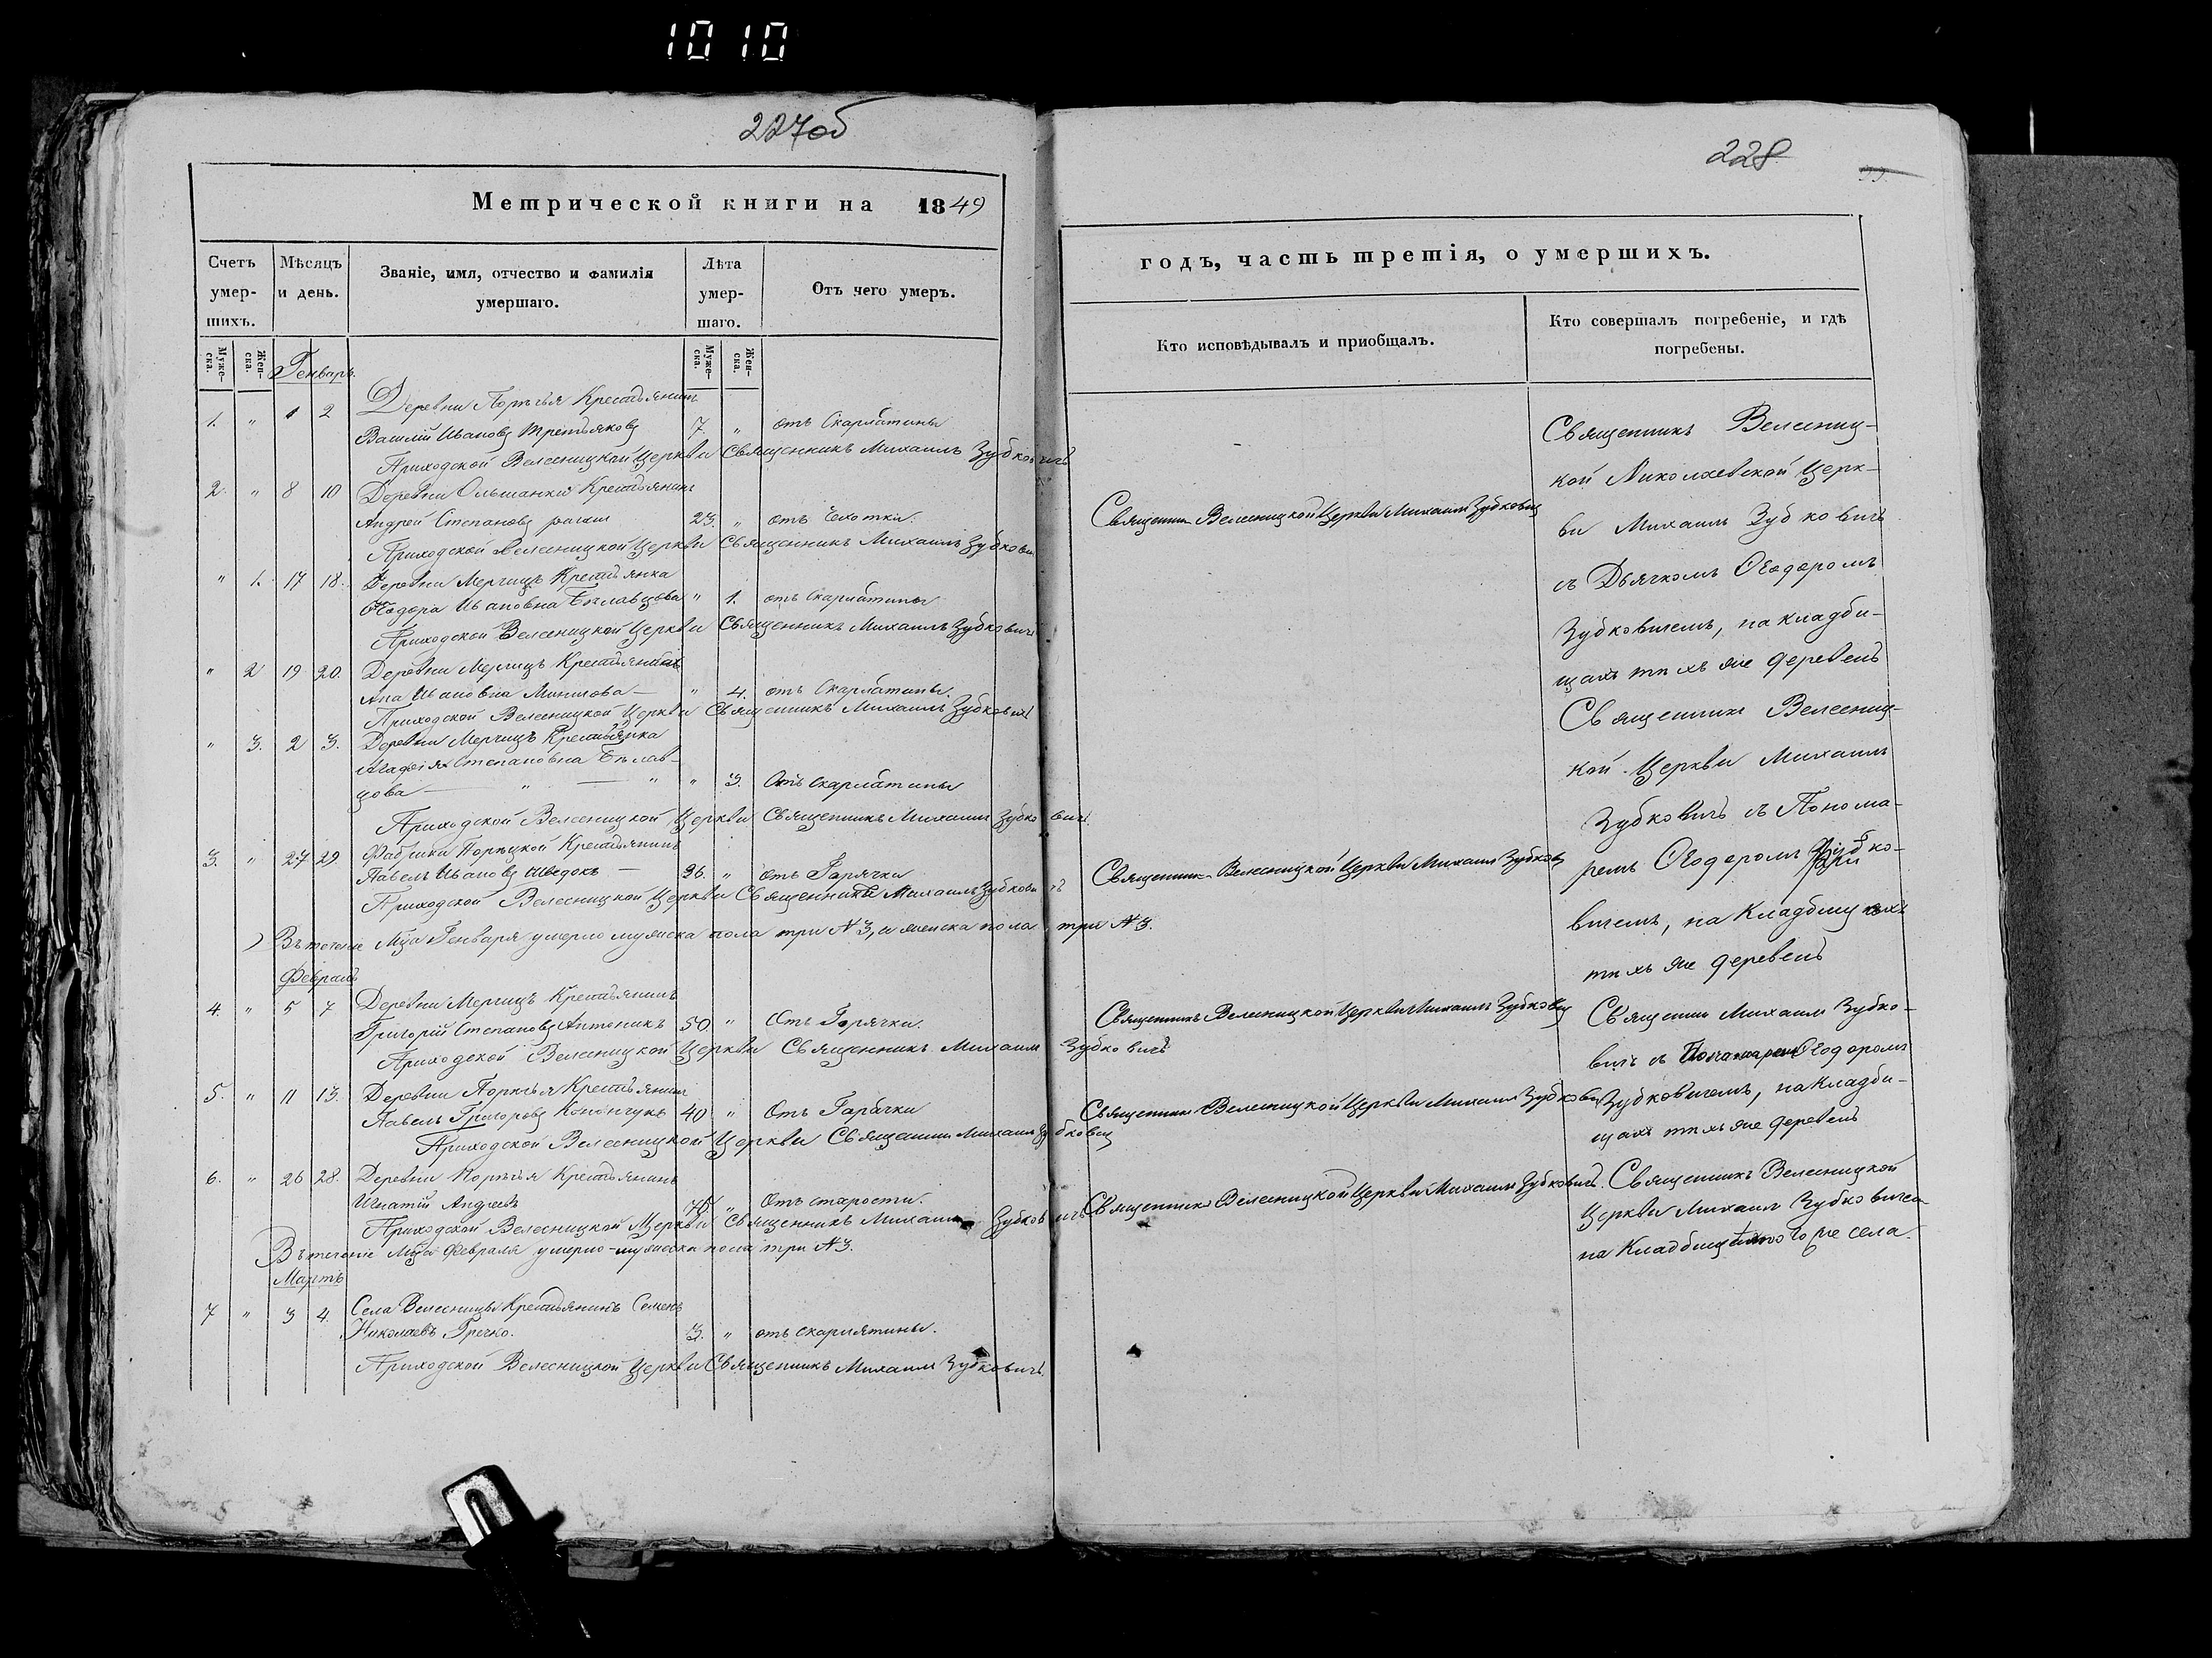 1010
227об
Метрической книги на 1849
Счетъ умер-шихъ.
Мѣсяцъ и день.
Званіе, имя, отчество и фамилія умершаго.
Лѣта умер-шаго.
Отъ чего умеръ.
Муже-ска.
Жен-ска.
Муже-ска.
Жен-ска.
Генварь.
Деревни Порѣчья Крестьянинъ
1. " 1 2 Василій Ивановъ Третьяковъ 7. " отъ Скарлатины
Приходской Велесницкой Церкви Священникъ Михаилъ Зубковичъ
2. " 8 10 Деревни Ольшанки Крестьянинъ
Андрей Степановъ 23. " отъ Чехотки.
Приходской Велесницкой Церкви Священникъ Михаилъ Зубкович
" 1. 17 18. Деревни Мерчицъ Крестьянка
Ѳеодора Ивановна Бѣлавцова " 1. отъ Скарлатины
Приходской Велесницкой Церкви Священникъ Михаилъ Зубковичъ
" 2 19 20. Деревни Мерчицъ
Анна Ивановна " 4. отъ Скарлатины.
Приходской Велесницкой Церкви Священникъ Михаилъ Зубковичъ
" 3. 2 3. Деревни Мерчицъ Крестьянка
Агафія Степановна Бѣлав-
цова " " " 3. Отъ Скарлатины
Приходской Велесницкой Церкви Священникъ Михаилъ Зубковичъ.
3. " 27 29. Фабрики Порѣцкой Крестьянинъ
Павелъ Ивановъ Шведокъ 36. " отъ Гарячки
Приходской Велесницкой Церкви Священникъ Михаилъ Зубковичъ
Въ теченіе Мца Генваря умерло мужска пола три №3, и женска пола три №3.
Февраль
4. " 5 7 Деревни Мерчицъ Крестьянинъ
Григорій Степановъ Антоникъ 50 " Отъ Горячки.
Приходской Велесницкой Церкви Священникъ Михаилъ Зубковичъ
5. " 11 13. Деревни Порѣчья Крестьянинъ
Павелъ Григоровъ Конончукъ 40 " Отъ Гарачки
Приходской Велесницкой Церкви Священник Михаилъ Зубкович
6. " 26 28. Деревни Порѣчья Крестьянинъ
Игнатій Андреевъ " Отъ старости.
Приходской Велесницкой Церкви Священникъ Михаилъ Зубковичъ
Въ теченіе Мца Февраля умерло мужеска пола три №3.
Мартъ
7 " 3 4. Села Велесницы Крестьянинъ Семенъ
Николаевъ Гречко. 3. " отъ скарлятины.
Приходской Велесницкой Церкви Священникъ Михаилъ Зубковичъ.
228
годъ, часть третія, о умершихъ.
Кто исповѣдывалъ и приобщалъ.
Кто совершалъ погребеніе, и гдѣ погребены.
Священник Велесницкой Церкви Михаилъ Зубкович
Священник Велесницкой Церкви Михаилъ Зубкович
Священникъ Велесницкой Церкви Михаилъ Зубкович
Священник Велесницкой Церкви Михаилъ Зубкович
Священник Велесницкой Церкви Михаилъ Зубковичъ.
Священникъ Велесниц-
кой Николаевской Церк-
ви Михаилъ Зубковичъ
съ Дьячкомъ Ѳеодоромъ
Зубковичемъ, на кладби-
щахъ тѣхъ же деревень
Священник Велесниц-
кой Церкви Михаилъ
Зубковичъ съ Понома-
ремъ Ѳеодоромъ Зубко-
вичемъ, на Кладбищахъ
тѣхъ же деревень
Священник Михаилъ Зубко-
вичъ съ Пономаремъ Ѳеодоромъ
Зубковичемъ, на Кладби-
щахъ тѣхъ же деревень
Священникъ Велесницкой
Церкви Михаилъ Зубкович
на Кладбищ же села.